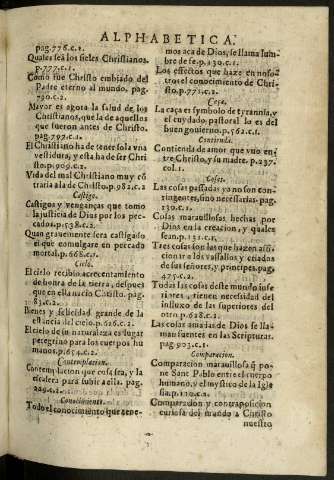 ALPHABETICA.
pag.776.c.1.
Quales seã los fieles Christianos.
p.777.c.1.
Como fue Christo embiado del
Padre eterno al mundo. pag.
790.c.2.
Mayor es agora la salud de los
Christianos, que la de aquellos
que fueron antes de Christo.
pag.797.c.1.
El Christiano ha de tener sola vna
vestidura, y esta ha de ser Chri
sto.p.909.c.2.
Vida del mal Christiano muy cõ
traria a la de Christo.p.982.c.2
Castigo.
Castigos y venganças que tomo
la justicia de Dios por los pec-
cados.p.538.c.2.
Quan grauemente sera castigado
el que comulgare en peccado
mortal.p.668.c.1.
Cielo.
El cielo recibio acrecentamiento
de honra de la tierra, despues
que en ella nacio Christo. pag.
832.c.2.
Bienes y felicidad grande de la
estancia del cielo.p.628.c.2.
El cielo de su naturaleza es lugar
peregrino para los cuerpos hu
manos.p.654.c.2.
Contemplacion.
Contemplacion que cosa sea, y la
escalera para subir a ella. pag.
Conocimiento.
Todo el conocimiento que tene-
mos aca de Dios, se llama lum-
bre de fe.p.130.c.1.
Los effectos que haze en noso-
tros el conocimiento de Chri-
sto.p.771.c.2.
Caça.
La caça es symbolo de tyrannia, y
el cuydado pastoral lo es del
buen gouierno.p.562.c.1.
Contienda.
Contienda de amor que vuo en-
tre Christo, y su madre. p.237.
col.1.
Cosas.
Las cosas passadas ya no son con-
tingentes, sino necessarias. pag.
130.c.1.
Cosas marauillosas hechas por
Dios en la creacion, y quales
sean.p.131.c.1.
Tres cosas son las que hazen affi-
cionar a los vassallos y criados
de sus señores, y principes. pag.
475.c.2.
Todas las cosas deste mundo infe
riores, tienen necesidad del
influxo de las superiores del
otro.p.628.c.1.
Las cosas amadas de Dios se lla-
man fuentes en las Scripturas.
pag.903.c.1.
Comparacion.
Comparacion marauillosa q̃ po
ne Sant Pablo entre el cuerpo
humano, y el mystico de la Igle
sia.p.120.c.2.
Comparacion y contraposicion
curiosa del mundo a Christo
nuestro